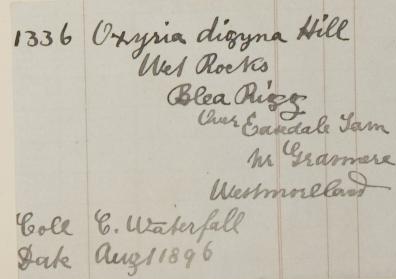 1336 Oxyria digyna Hill
Wet Rocks
Blea Rigg
Over Easedale Tarn
Nr Grasmere
Westmorelland
Coll C. Waterfall
Date Aug 1896